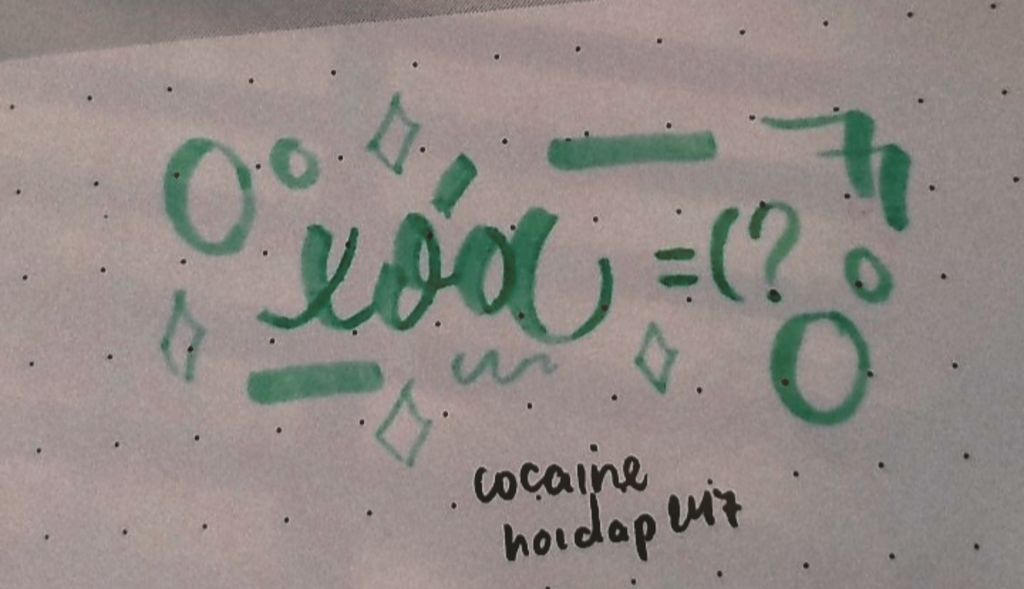 xóa =(?
cocaine
hoidap247